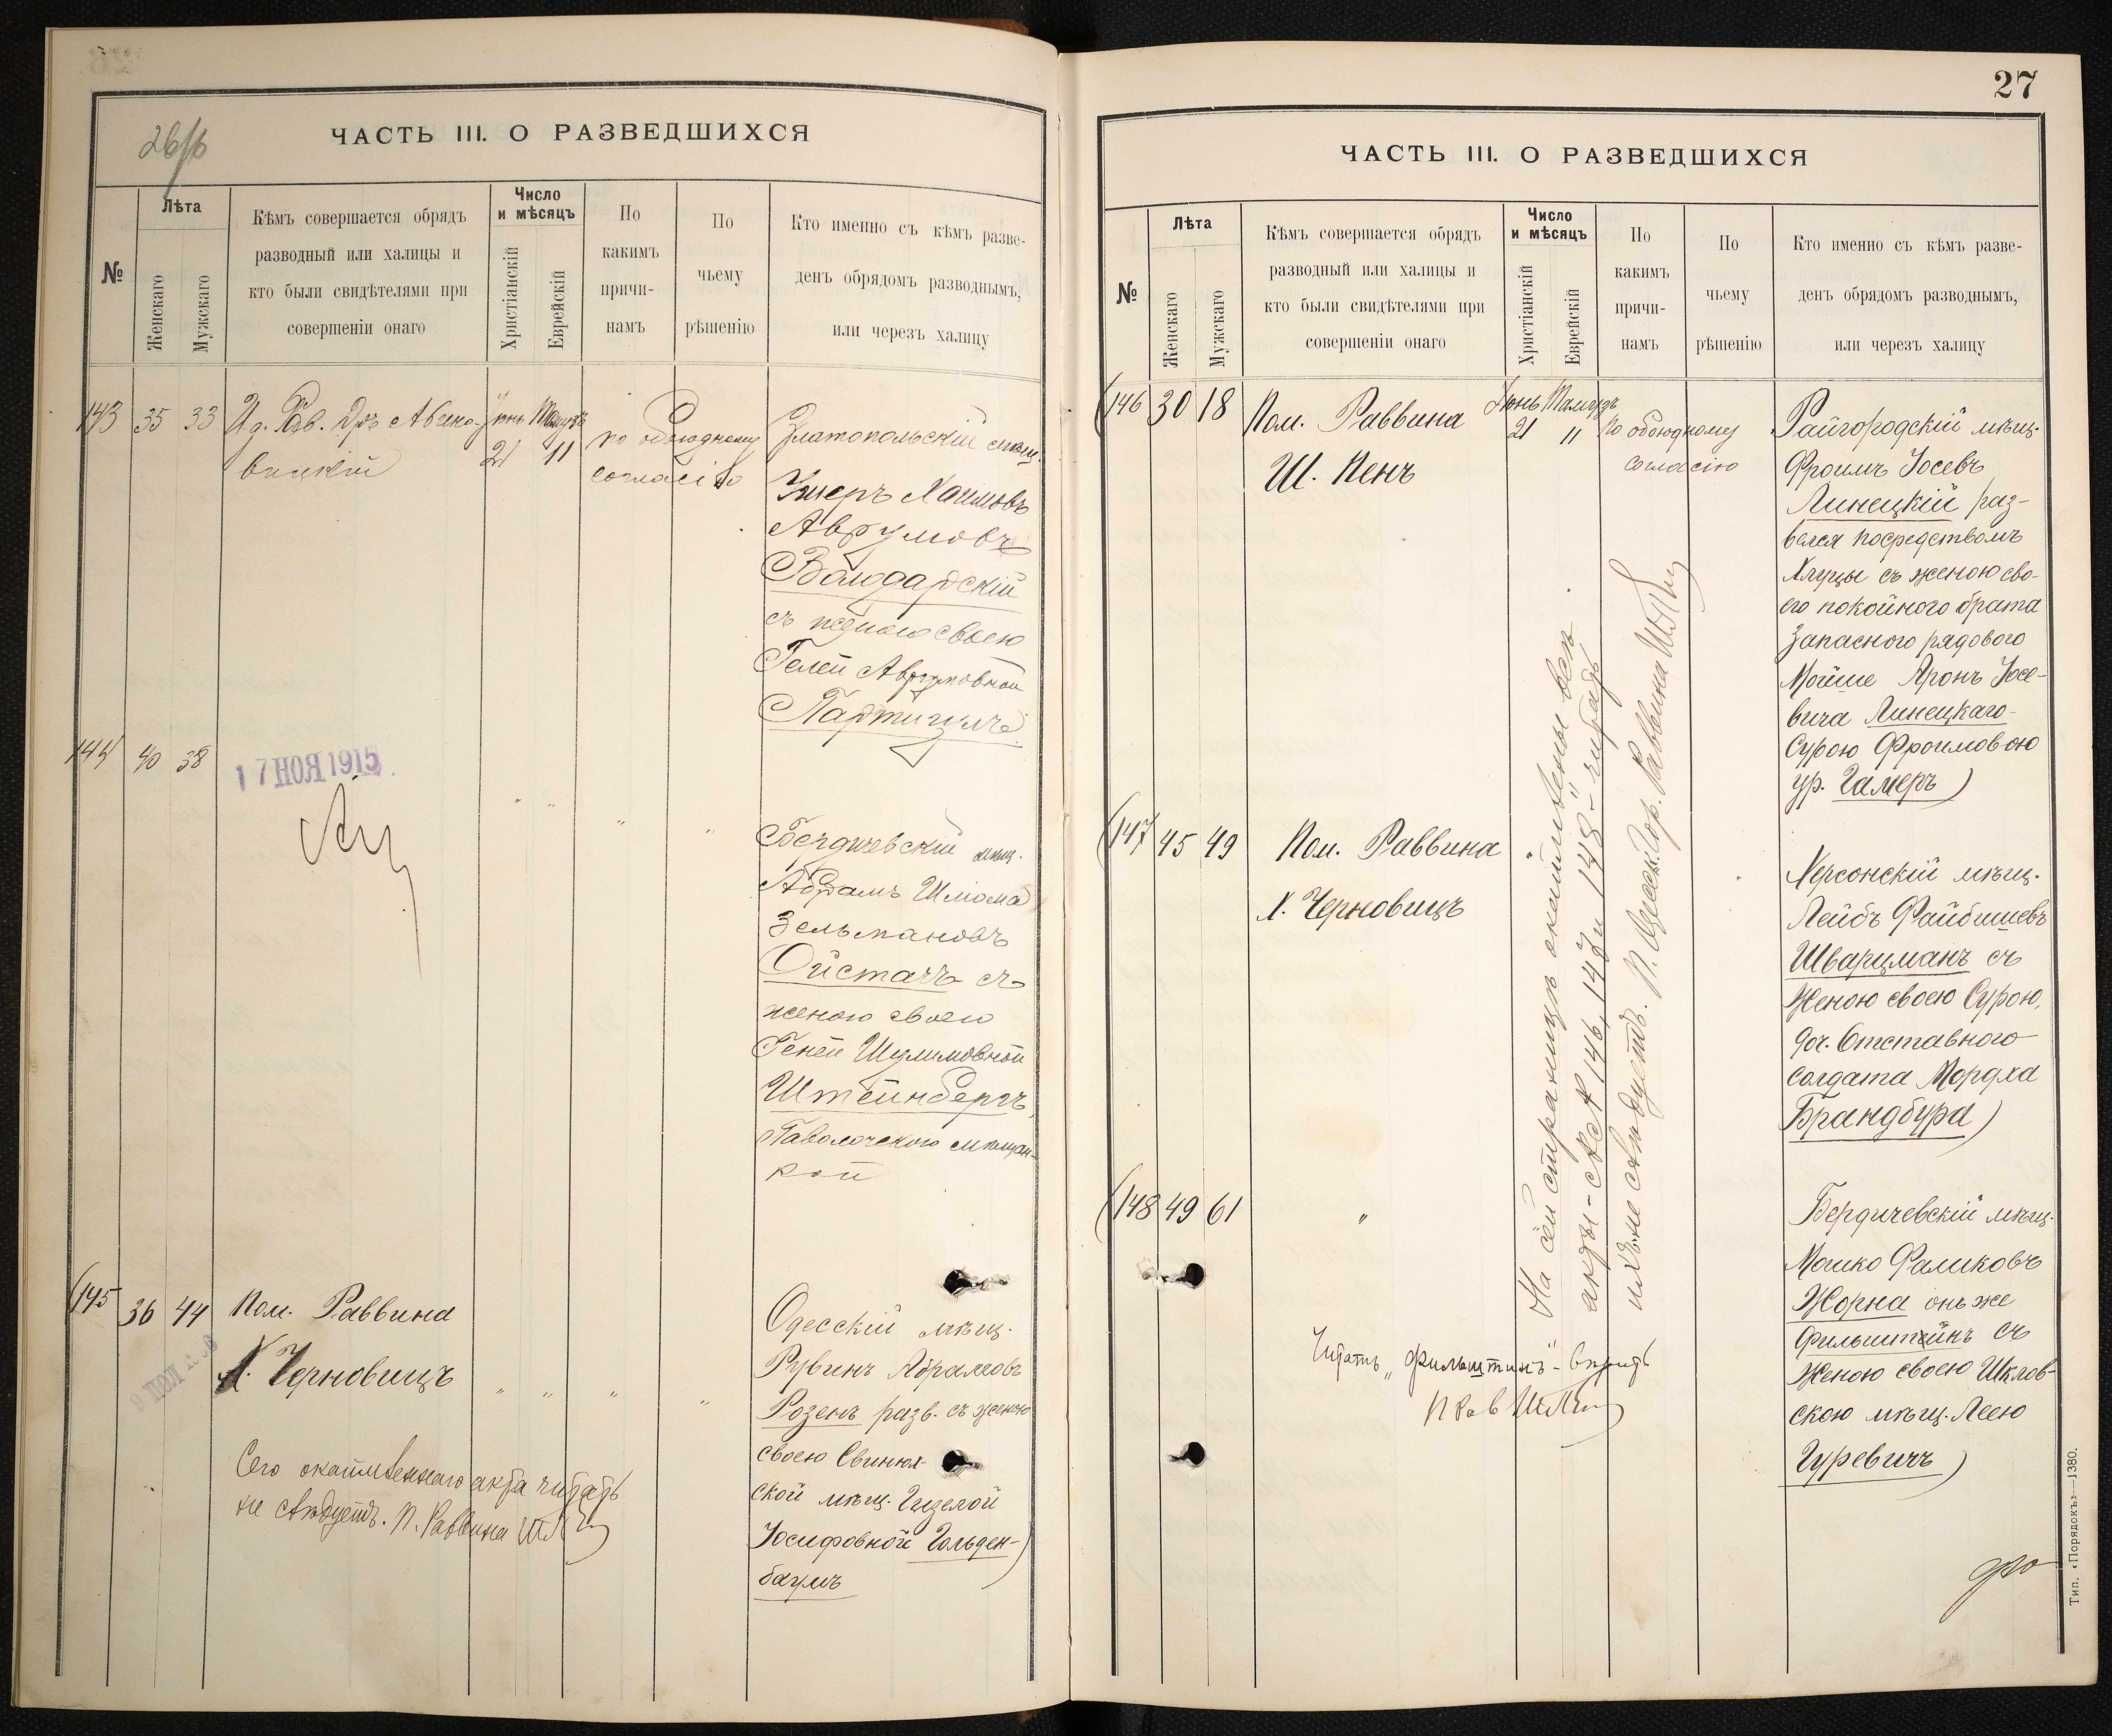 26/б
ЧАСТЬ III. О РАЗВЕДШИХСЯ
№
Лѣта
Женскаго
Мужскаго
Кѣмъ совершается обрядъ
разводный или халицы и
кто были свидѣтелями при
совершеніи онаго
Число
и мѣсяцъ
Христіанскій
Еврейскій
По
какимъ
причи-
намъ
По
чьему
рѣшенію
Кто именно съ кѣмъ разве-
денъ обрядомъ разводнымъ,
или черезъ халицу
143 35 33
Іюнь Тамузъ
21 11
по обоюдному
согласію
Златопольскій мѣщ.
Ушеръ Хаимовъ
Аврумовъ
Володарскій
съ женою своею
Гелей Аврумовной
144 40 38
17 НОЯ 1915
" " " "
Бердичевскій мѣщ.
Абрамъ Шлома
Зельмановъ
Ойстачъ съ
женою своею
Геней Шулимовной
Штейнбергъ,
Паволочскою мѣщан-
кой
145 36 44
Пом. Раввина
Х. Черновицъ
" " " "
Одесскій мѣщ.
Рувинъ Абрамовъ
Розенъ разв. съ женою
своею Свинюх-
ской мѣщ. Гизелой
Іосифовной Гольден-
баумъ
Сего окаймленнаго акта читать
не слѣдуетъ. П. Раввина
27
ЧАСТЬ III. О РАЗВЕДШИХСЯ
№
Лѣта
Женскаго
Мужскаго
Кѣмъ совершается обрядъ
разводный или халицы и
кто были свидѣтелями при
совершеніи онаго
Число
и мѣсяцъ
Христіанскій
Еврейскій
По
какимъ
причи-
намъ
По
чьему
рѣшенію
Кто именно съ кѣмъ разве-
денъ обрядомъ разводнымъ,
или черезъ халицу
146 30 18
Пом. Раввина
Ш. Пенъ
Іюнь Тамузъ
21 11
По обоюдному
согласію
Райгородскій мѣщ.
Фроимъ Іосевъ
Линецкій раз-
велся посредствомъ
Халуцы съ женою сво-
его покойного брата
Запасного рядового
Мойше Аронъ Іосе-
вича Линецкаго
Сурою Фроимовою
ур. Гамеръ)
147 45 49
Пом. Раввина
Х. Черновицъ
"
Херсонскій мѣщ.
Лейбъ Файбишевъ
Шварцманъ съ
Женою своею Сурою,
доч. Отставного
солдата Мордха
Брандбура)
148 49 61
"
Бердичевскій мѣщ.
Мошко Фаликовъ
Жорна онъ же
Фильштейнъ съ
Женою своею Шклов-
скою мѣщ. Леею
Гуревичъ)
На сей страницѣ окаймлены всѣ
акты - 146, 147 и 148 - читать
ихъ не слѣдуетъ. П. Одесск. Гор. Раввина
Читать „Фильштинъ" - вѣрить
П Рав
Тип. «Порядокъ»—1380.